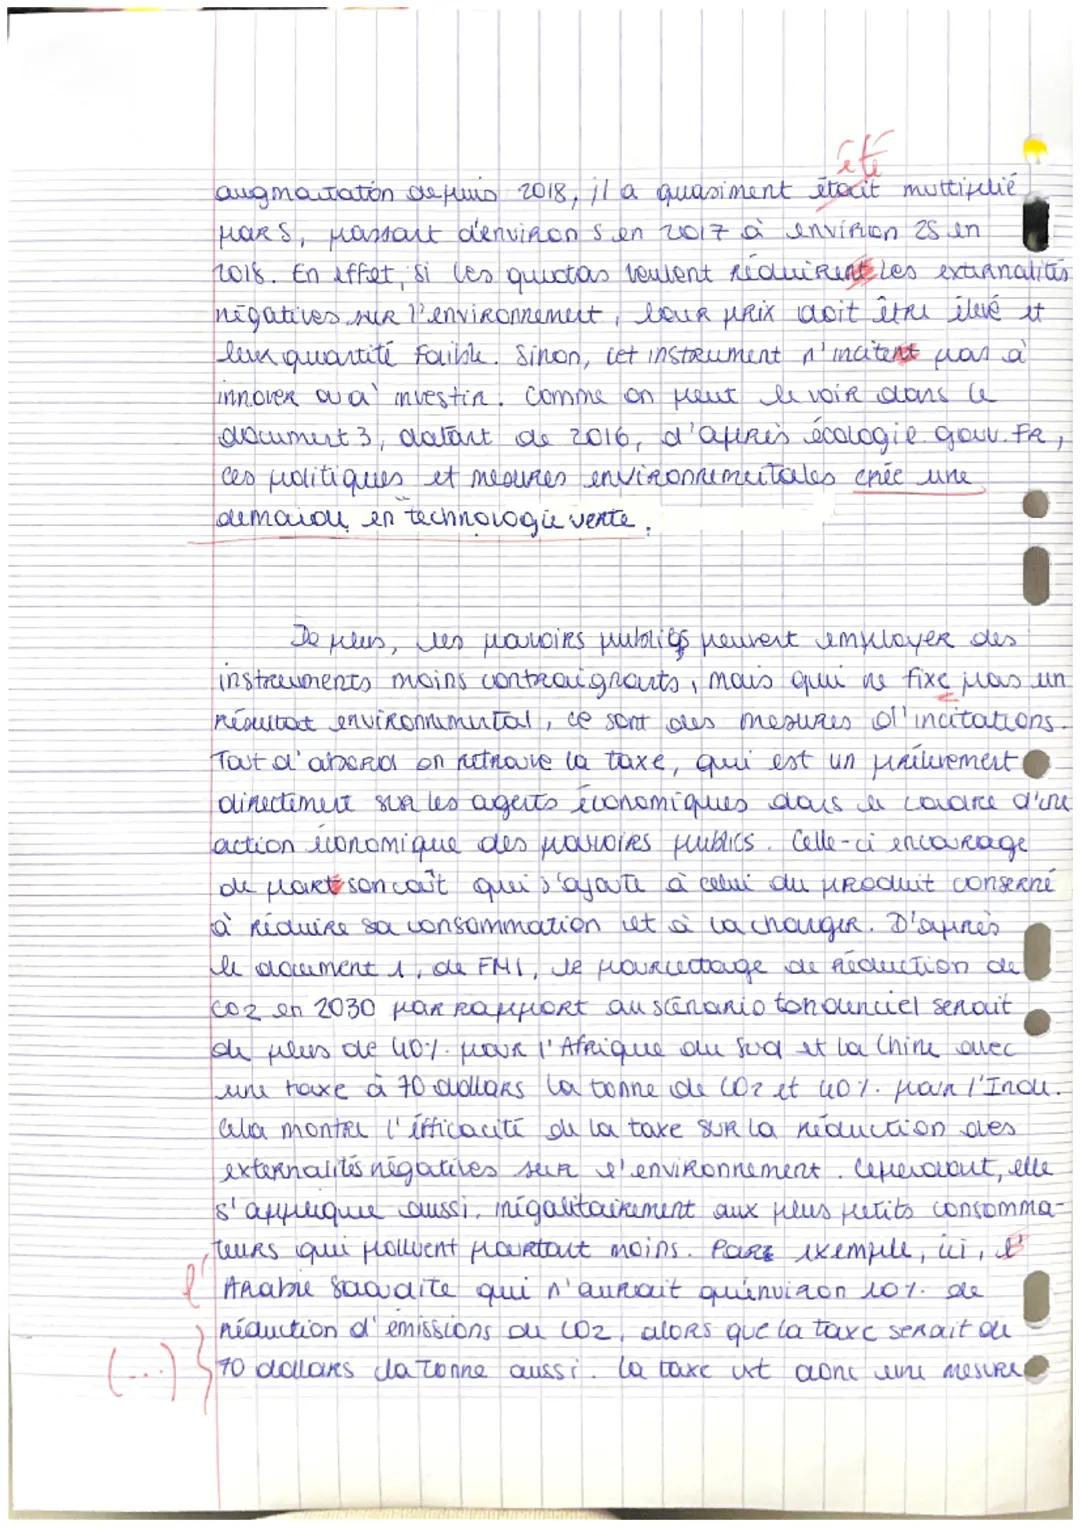 été
augmentation depuis 2018, il a quasiment était multiplié
par 5, passant d'environ 5 en 2017 à environ 25 en
2018. En effet, si les quotas veulent réduirent les externalités
négatives sur l'environnement, leur prix doit être élevé et
leur quantité faible. Sinon, cet instrument n'incitent pas à
innover ou à investir. Comme on peut le voir dans le
document 3, datant de 2016, d'après écologie.gouv.fr,
ces politiques et mesures environnementales crée une
demande en technologie verte.
De plus, les pouvoirs publics peuvent employer des
instruments moins contraignants, mais qui ne fixe pas un
résultat environnemental, ce sont des mesures d'incitations.
Tout d'abord on retrouve la taxe, qui est un prélèvement
directement sur les agents économiques dans le cadre d'une
action économique des pouvoirs publics. Celle-ci encourage
de part son coût qui s'ajoute à celui du produit conserné
à réduire sa consommation et à la changer. D'après
le document 1, de FMI, le pourcentage de réduction de
CO2 en 2030 par rapport au scénario tendenciel serait
de plus de 40% pour l'Afrique du Sud et la Chine avec
une taxe à 70 dollars la tonne de CO2 et 40% pour l'Inde.
Cela montre l'éfficacité de la taxe sur la réduction des
externalités négatives sur l'environnement. Cependant, elle
s'applique aussi, inégalitairement aux plus petits consomma-
teurs qui polluent pourtant moins. Par exemple, ici, l'
l' Arabie Saoudite qui n'aurait qu'environ 10% de
réduction d'émissions de CO2, alors que la taxe serait de
(...) } 70 dollars la tonne aussi. La taxe est donc une mesure